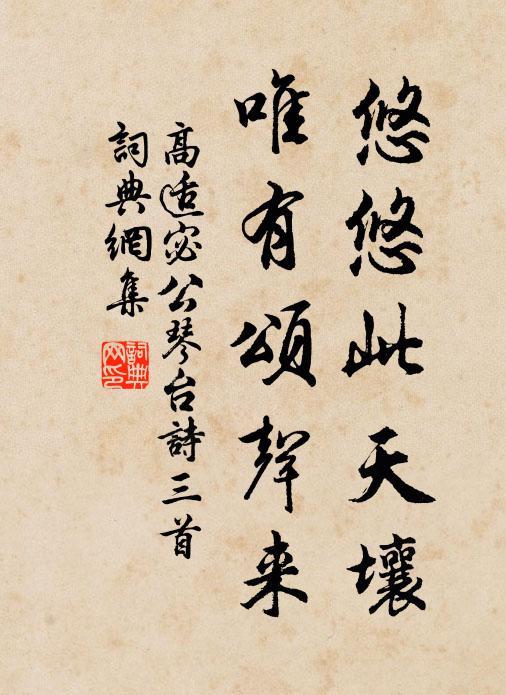 悠悠此天壤
唯有頌聲来
高适宓公琴台詩三首
詞典網集
詞典網印